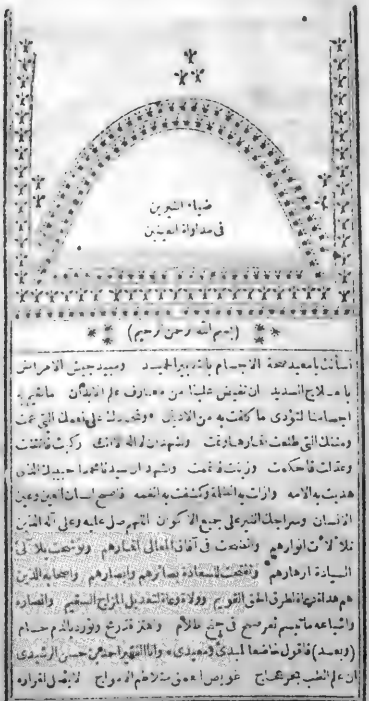 ضياء النيرين
في مداواة العينين
(بسم الله الرحمن الرحيم)
نسألك يا معيد صحة الاجسام بالتدبير الحميد ومبيد جيش الامراض
بالعلاج السديد ان تفيض علينا من معارف علم الابدان ما تقوى به
اجسامنا لنؤدى ما كلفت به من الاديان ونحمدك على نعمك التى عمت
ومننك التى طلعت ونشهدان لا اله الا انت ركبت فأتقنت
وعدلت فأحكمت وزينت فأتممت ونشهد ان سيدنا محمدا حبيبك الذى
هديت به الامه وازلت به الظلمة وكشفت به الغمه فأصبح انسان العين وعين
الانسان وسراجك المنير على جميع الاكوان اللهم صل عليه وعلى آله الذين
تلألأت انوارهم فى آفاق المعالى اقمارهم
السيادة ازهارهم بصائرهم وابصارهم واصحابه الذين
هم هداة طرق الحق القويم وولاة تعديل المزاج السقيم وانصاره
واتباعه ما ابتسم ثغر صبح فى جنح ظلام
(وبعد) فأقول خاضعا لمبدئ ومعيدى وانا الفقير احمد بن حسن الرشيدى
ان علم الطب بحر عجاج عويص متلاطم الامواج لا يصل لقراره